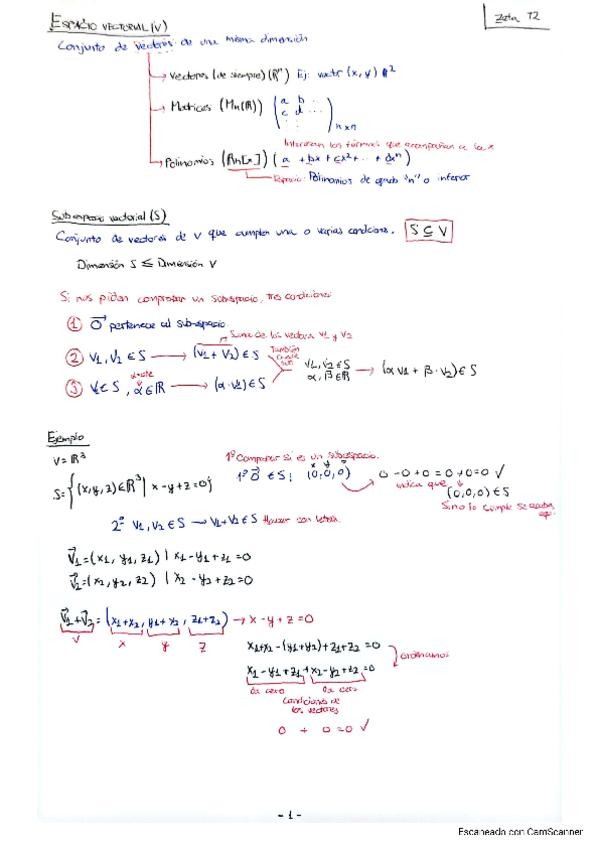 ESPACIO VECTORIAL (V)
Zeta T2
Conjunto de vectores de una misma dimensión
→ Vectores (de siempre) (Rⁿ) Ej: vector (x, y) R²
→ Matrices (Mn(R)) ( a b ... c d ... ) n x n
Interesan los términos que acompañan a la x
→ Polinomios (Rn[x]) (a + bx + cx² + ... + dxⁿ)
Espacio: Polinomios de grado "n" o inferior
Subespacio vectorial (S)
Conjunto de vectores de V que cumplen una o varias condiciones. S ⊆ V
Dimensión S ≤ Dimensión V
Si nos piden comprobar un subespacio, tres condiciones
① 0⃗ pertenece al subespacio.
Suma de los vectores v1 y v2
② V1, V2 ∈ S → (V1 + V2) ∈ S
También
V1, V2 ∈ S
α, β ∈ R → (α V1 + β · V2) ∈ S
③ V ∈ S, α ∈ R → (α · V2) ∈ S
Ejemplo
V = R³
1º Comprobar si es un subespacio.
S = {(x, y, z) ∈ R³ | x - y + z = 0}
1º 0⃗ ∈ S; (0, 0, 0)
0 - 0 + 0 = 0 → 0 = 0 ✓
indica que (0, 0, 0) ∈ S
Si no lo cumple se acaba aquí
2º V1, V2 ∈ S → V1 + V2 ∈ S Hacer con letras.
V⃗1 = (x1, y1, z1) | x1 - y1 + z1 = 0
V⃗2 = (x2, y2, z2) | x2 - y2 + z2 = 0
V⃗1 + V⃗2 = (x1 + x2, y1 + y2, z1 + z2) → x - y + z = 0
V x y z
x1 + x2 - (y1 + y2) + z1 + z2 = 0
ordenamos
x1 - y1 + z1 + x2 - y2 + z2 = 0
Da cero Da cero
Condiciones de
los vectores
0 + 0 = 0 ✓
- 1 -
Escaneado con CamScanner